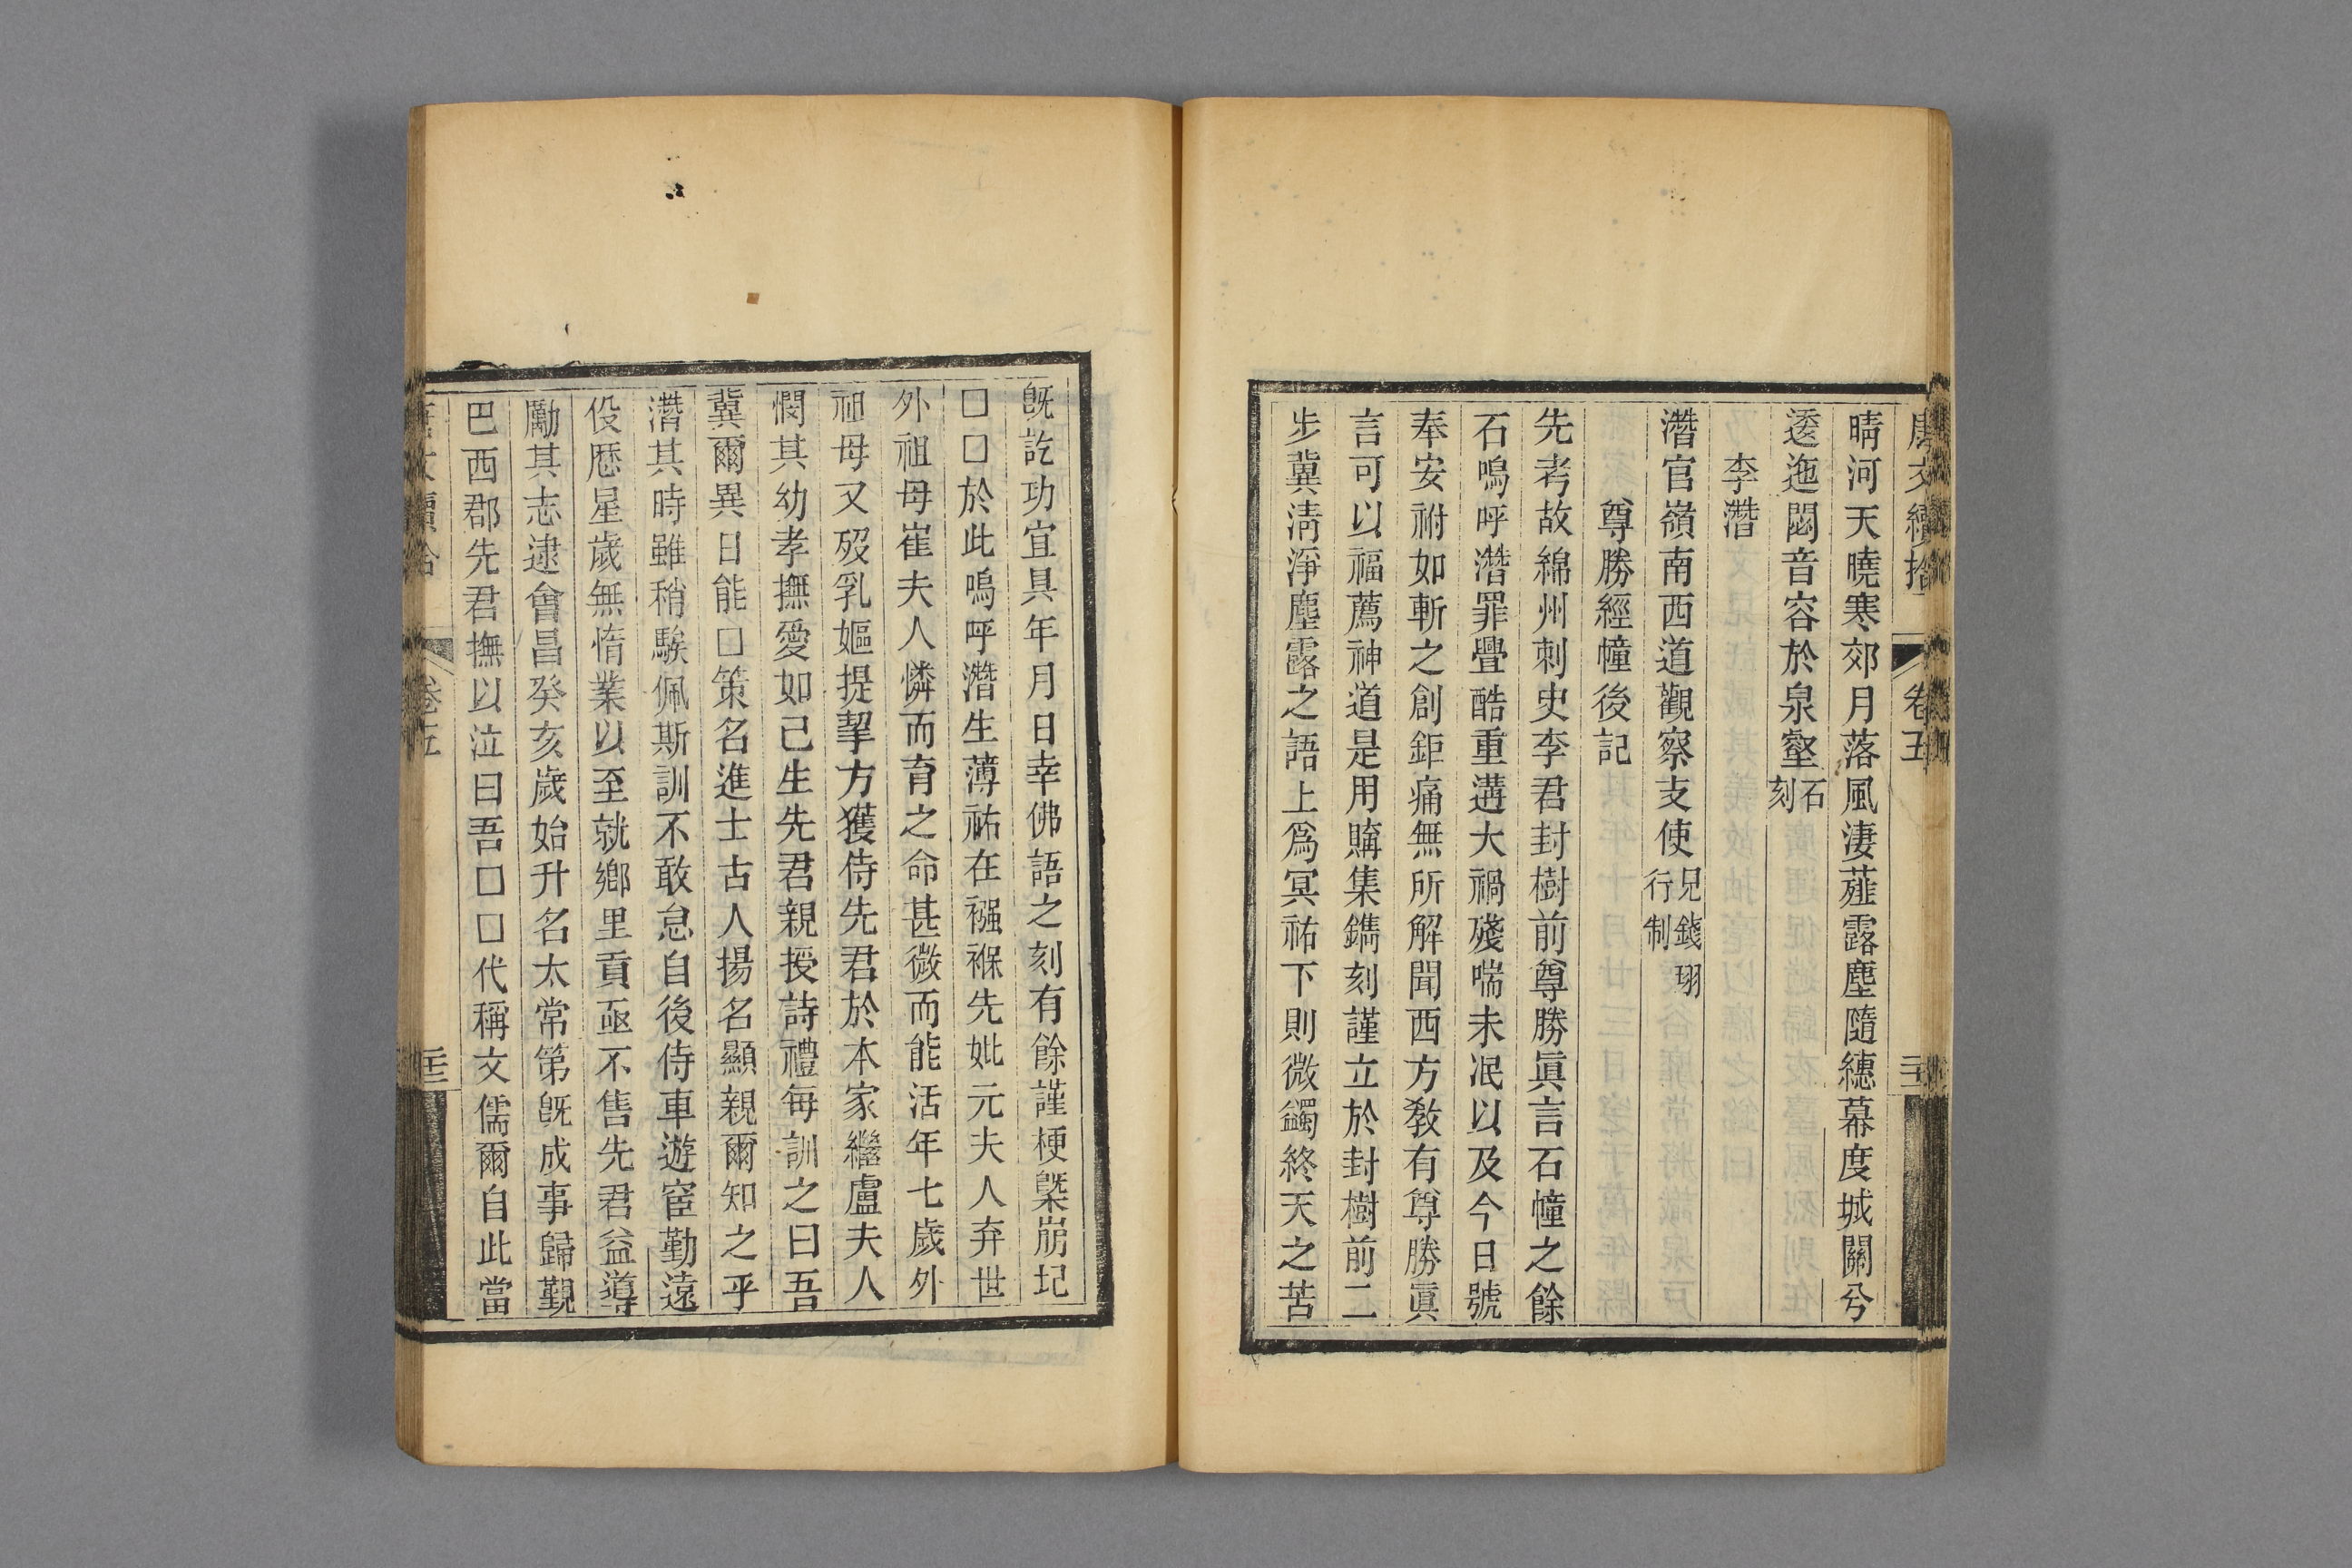 唐文續拾 卷五
晴河天曉寒郊月落風淒薤露塵隨繐幕度城闕兮
逶迤閟音容於泉壑石刻
李濳
濳官嶺南西道觀察支使兄錢珝行制
尊勝經幢後記
先考故綿州刺史李君封樹前尊勝眞言石幢之餘
石嗚呼濳罪舋酷重遘大禍殘喘未泯以及今日號
奉安祔如斬之創鉅痛無所解聞西方敎有尊勝眞
言可以福薦神道是用購集鐫刻謹立於封樹前二
步冀清淨塵露之語上爲冥祐下則微蠲終天之苦
旣訖功宜具年月日幸佛語之刻有餘謹梗槩崩圮
□□於此嗚呼濳生薄祐在襁褓先妣元夫人弃世
外祖母崔夫人憐而育之命甚微而能活年七歲外
祖母又歿乳嫗提挈方獲侍先君於本家繼盧夫人
憫其幼孝撫愛如己生先君親授詩禮每訓之曰吾
冀爾異日能□策名進士古人揚名顯親爾知之乎
濳其時雖稍騃佩斯訓不敢怠自後侍車遊宦勤遠
伇歷星歲無惰業以至就鄉里貢亟不售先君益導
勵其志逮會昌癸亥歲始升名太常第旣成事歸覲
巴西郡先君撫以泣曰吾□□代稱文儒爾自此當
卷五